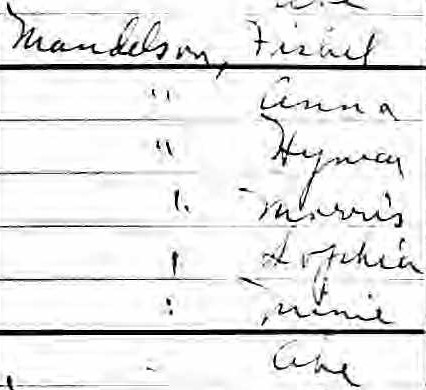 Mandelson, Fishel
" Anna
" Hyman
" Morris
" Sophia
" Minnie
" Abe